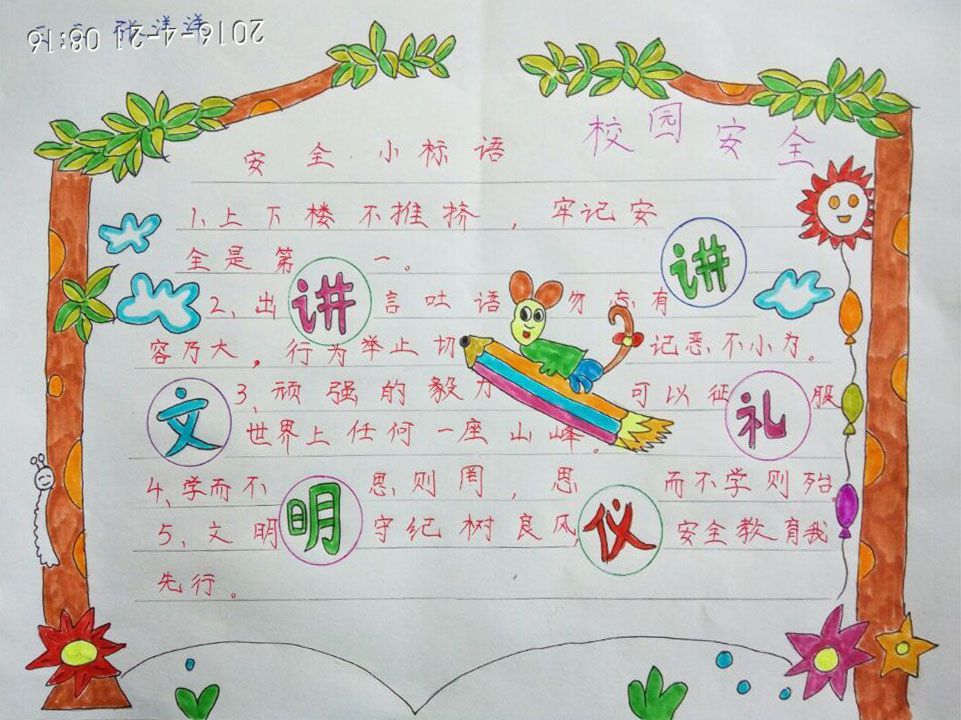 2016-4-21 08:16
张洋洋
校园安全
安全小标语
1、上下楼不推挤，牢记安
全是第一。
2、出言吐语勿忘有
容乃大，行为举止切记恶不小为。
3、顽强的毅力可以征服
世界上任何一座山峰。
4、学而不思则罔，思而不学则殆。
5、文明守纪树良风，安全教育我
先行。
讲
文
明
讲
礼
仪